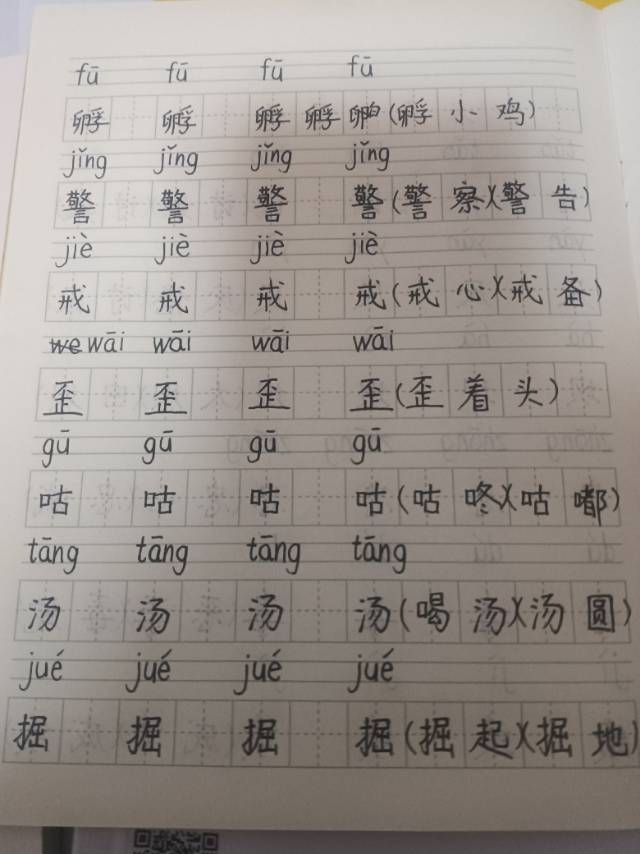 fū fū fū fū
孵 孵 孵 孵 (孵 小 鸡)
jǐng jǐng jǐng jǐng
警 警 警 警 (警 察)(警 告)
jiè jiè jiè jiè
戒 戒 戒 戒 (戒 心)(戒 备)
wāi wāi wāi wāi
歪 歪 歪 歪 (歪 着 头)
gū gū gū gū
咕 咕 咕 咕 (咕 咚)(咕 嘟)
tāng tāng tāng tāng
汤 汤 汤 汤 (喝 汤)(汤 圆)
jué jué jué jué
掘 掘 掘 掘 (掘 起)(掘 地)